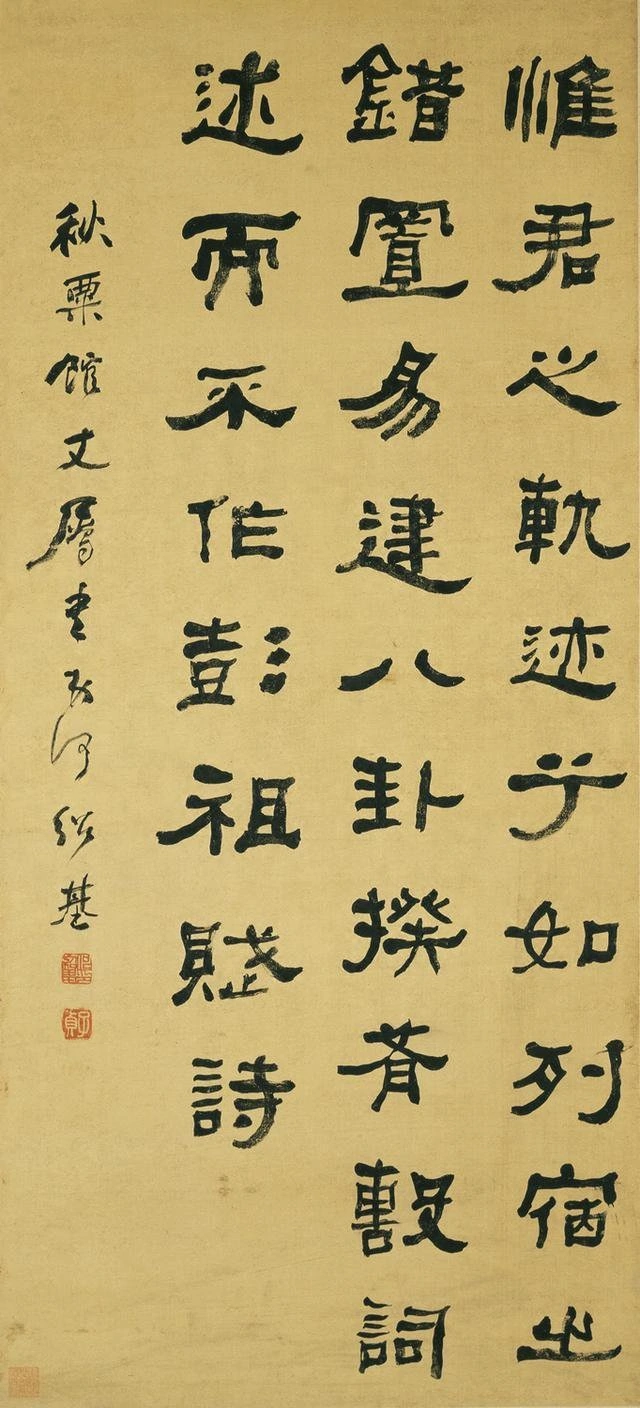 惟君之軌迹兮如列宿之
錯置易建八卦揆肴毄詞
述而不作彭祖賦詩
秋粟館丈屬書何紹基
子貞